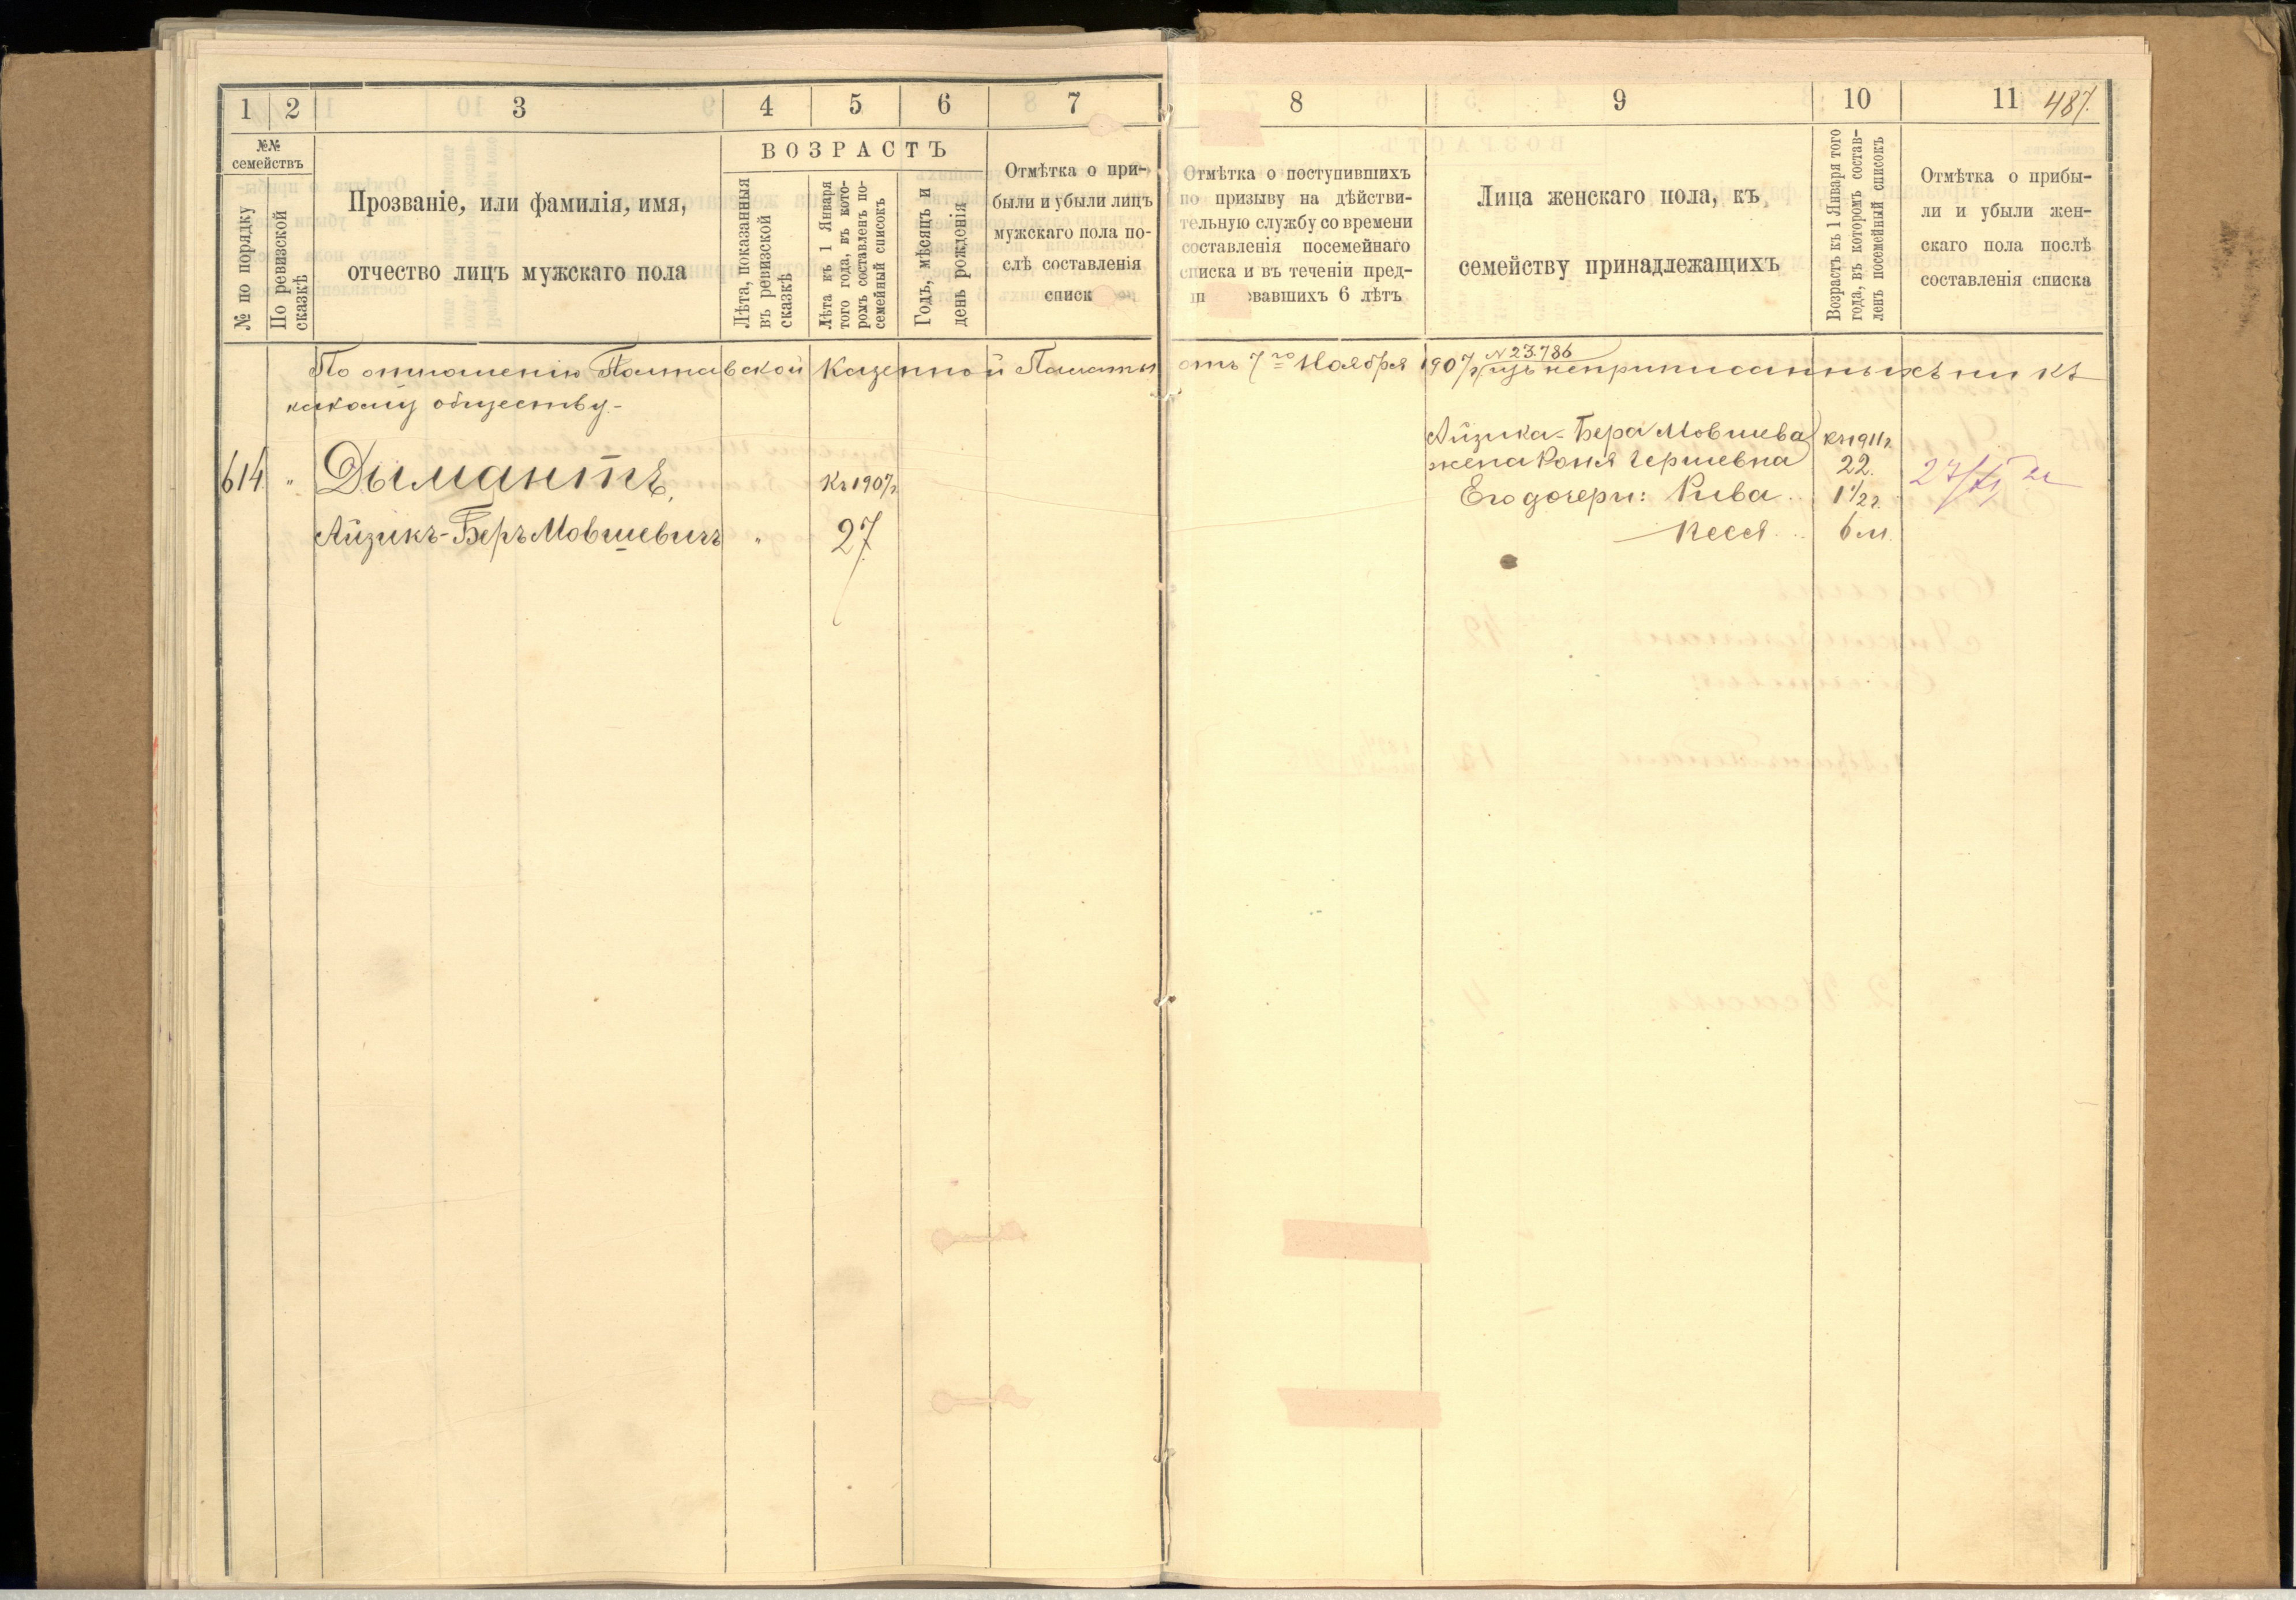 1 2 3 4 5 6 7 8 9 10 11 487.
№№ семействъ
№ по порядку
По ревизской сказкѣ
Прозваніе, или фамилія, имя,
отчество лицъ мужскаго пола
ВОЗРАСТЪ
Лѣта, показанныя
въ ревизской
сказкѣ
Лѣта къ 1 Января
того года, въ кото-
ромъ составленъ по-
семейный списокъ
Годъ, мѣсяцъ и
день рожденія
Отмѣтка о при-
были и убыли лицъ
мужскаго пола по-
слѣ составленія
списк
Отмѣтка о поступившихъ
по призыву на дѣйстви-
тельную службу со времени
составленія посемейнаго
списка и въ теченіи пред-
ш овавшихъ 6 лѣтъ
Лица женскаго пола, къ
семейству принадлежащихъ
Возрастъ къ 1 Января того
года, въ которомъ состав-
ленъ посемейный списокъ
Отмѣтка о прибы-
ли и убыли жен-
скаго пола послѣ
составленія списка
По отношенію Полтавской Казенной Палаты отъ 7го Ноября 1907 г. N 23.786 изъ неприписанныхъ ни къ
какому обществу.-
614. " Дымантъ, Къ 1907 г.
Айзикъ-Беръ Мовшевичъ " 27
Айзика-Бера Мовшева Къ 1911 г.
жена Роня Гершевна 22.
Его дочери: Рива.. 1 1/2 г.
Песя... 6 м.